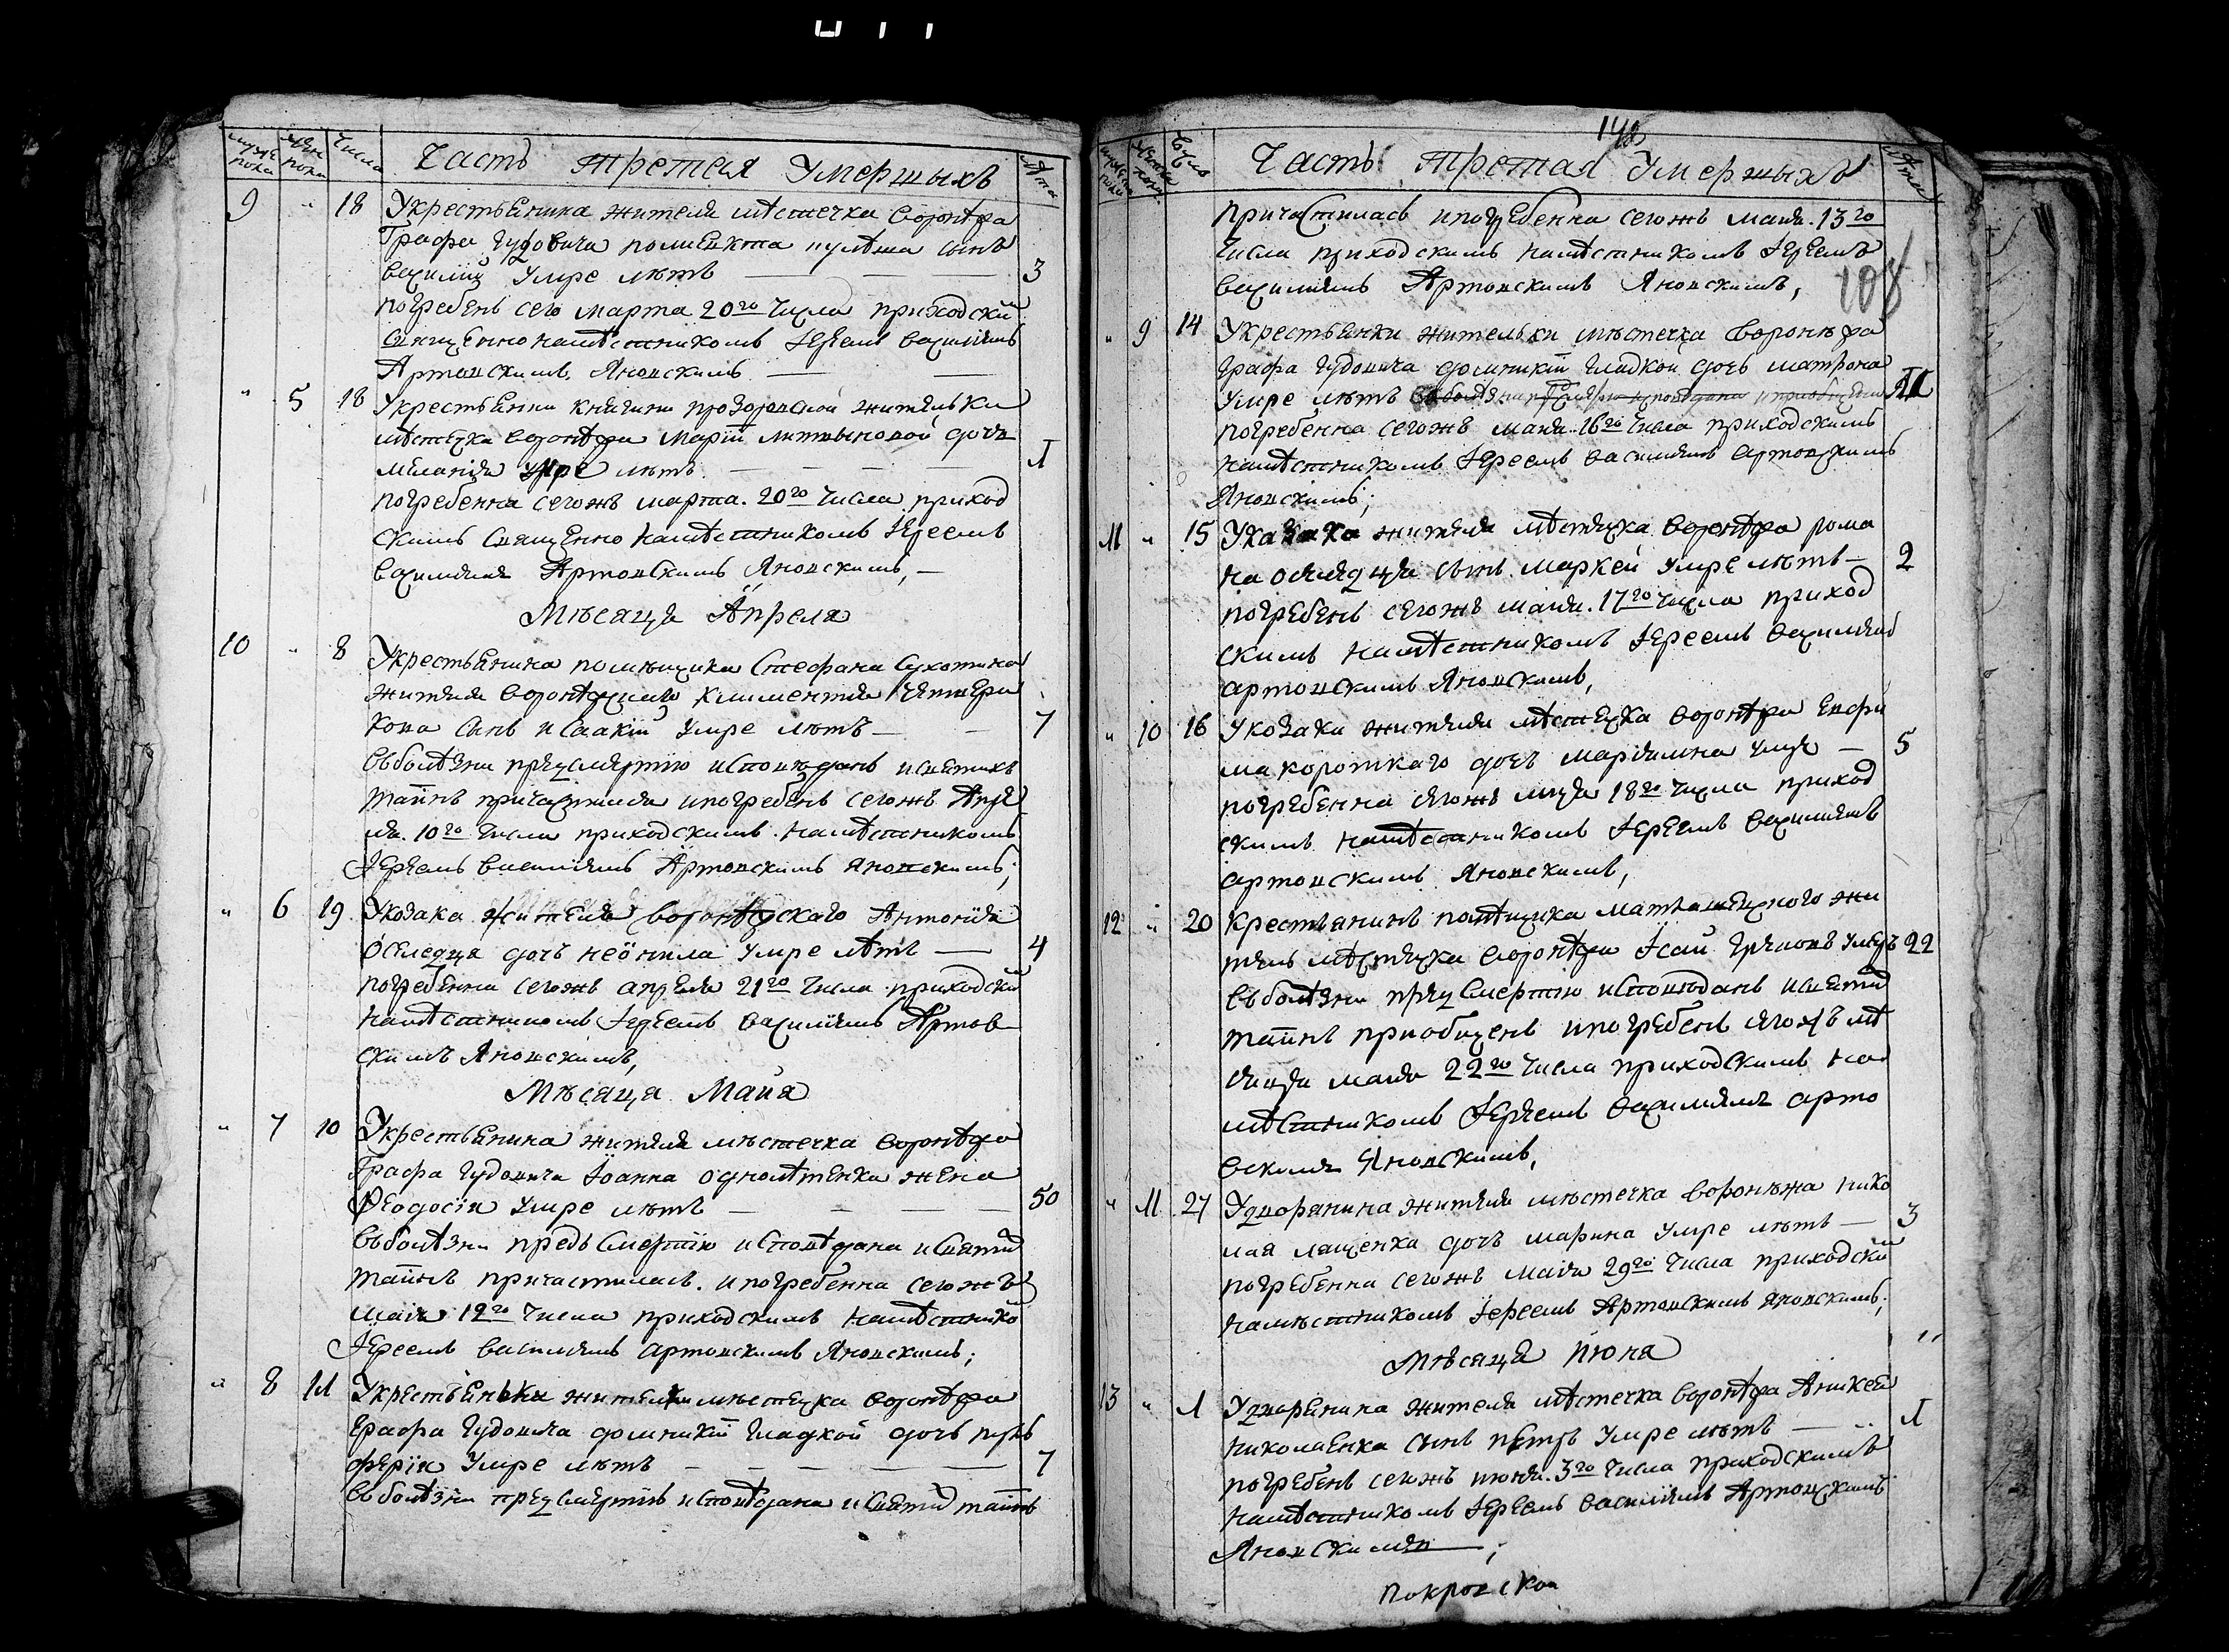 мужеска пола женска пола Числа Часть третая Умершыхъ лѣта
9 " 18 Укрестьянина жителя мѣстечка воронѣжа
Графа Гудовича сынъ
василий Умре лѣтъ — 3
погребенъ сего марта 20го Числа приходскимъ
священнонамѣстникомъ Іереемъ василіемъ
Артовскимъ Яновскимъ —
" 5 18 Укрестьянки княгини прозоровской жительки
мѣстечка воронѣжа Маріи литвыновой дочь
меланія умре лѣтъ — — — 1
погребенна сегожъ марта. 20го Числа приход
скимъ священно намѣстникомъ Іереемъ
василиемъ Артовскимъ Яновскимъ, —
Мѣсяца Апреля
10 " 8 Укрестьянина помѣщика Стефана Сухотина
жителя воронѣжскаго климентия
кова сынъ исаакий Умре лѣтъ — 7
въболѣзни предсмертию исповѣданъ исвятихъ
таинъ причастился ипогребенъ сегожъ Апре
ля. 10го Числа приходскимъ намѣстникомъ
Іереемъ василиемъ Артовскимъ яновскимъ;
" 6 19 Укозака жителя воронѣжскаго Антонія
Оследца дочъ неонила Умре лѣтъ — 4
погребенна сегожъ апреля 21го Числа приходски
намѣстникомъ Іереемъ василиемъ Артов
скимъ Яновскимъ,
Мѣсяца Маия
" 7 10 Укрестьянина жителя мѣстечка воронѣжа
Графа Гудовича Іоанна однолѣтенка жена
Феодосія Умре лѣтъ — — — 50
въболѣзни предъ Смертію исповѣдана исвятих
таинъ причастиласъ. ипогребенна сегожъ
маия 12го Числа приходскимъ намѣстнико
Іереемъ василиемъ артовскимъ Яновскимъ;
" 8 11 Укрестьянки жителки мѣстечка воронѣжа
графа Гудовича домникіи гладкой дочъ
ферія Умре лѣтъ — — — 7
въболѣзни предсмертію исповѣдана исвятих таинъ
мужеска пола женска пола Числа Часть третая Умершыхъ лѣта
148
причастиласъ ипогребенна сегожъ маия. 13го
Числа приходскимъ намѣстникомъ Іереемъ
василиемъ Артовскимъ Яновскимъ,
108
" 9 14 Укрестьянки жительки мѣстечка воронѣжа
графа Гудовича домникіи гладкои дочъ матрона
Умре лѣтъ
погребенна сегожъ маия. 16го Числа приходскимъ
намѣстникомъ Іереемъ василиемъ артовскимъ
Яновскимъ;
11 " 15 Указака жителя мѣстечка воронѣжа рома
на оследця сынъ маркей умре лѣтъ — 2
погребенъ сегожъ маия. 17го числа приход
скимъ намѣстникомъ Іереемъ василиемъ
артовскимъ Яновскимъ,
" 10 16 Укозака жителя мѣстечка воронѣжа евфи
ма короткаго дочъ умре — 5
погребенна сегожъ маия 18го числа приход
скимъ намѣстникомъ Іереемъ василиемъ
артовскимъ Яновскимъ,
12 " 20 Крестьянинъ помѣщика жи
тель мѣстечка воронѣжа Ісаи умеръ 22
въболѣзни предсмертию исповѣданъ исвятих
таинъ приобщенъ ипогребенъ сегожъ мѣ
сяця маия 22го Числа приходскимъ на
мѣстникомъ Іереемъ василиемъ арто
вскимъ Яновскимъ,
" 11 27 Удворянина жителя мѣстечка воронѣжа нико
лая лащенка дочъ марина Умре лѣтъ — 3
погребенна сегожъ маия 29го Числа приходски
намѣстникомъ Іереемъ Артовскимъ яновскимъ;
Мѣсяца Июня
13 " 1 Удворенина жителя мѣстечка воронѣжа Аникея
николаенка сынъ петръ Умре лѣтъ — 1
погребенъ сегожъ июня. 3го Числа приходскимъ
намѣстникомъ Іереемъ василиемъ Артовскимъ
Яновскимъ;
покровской